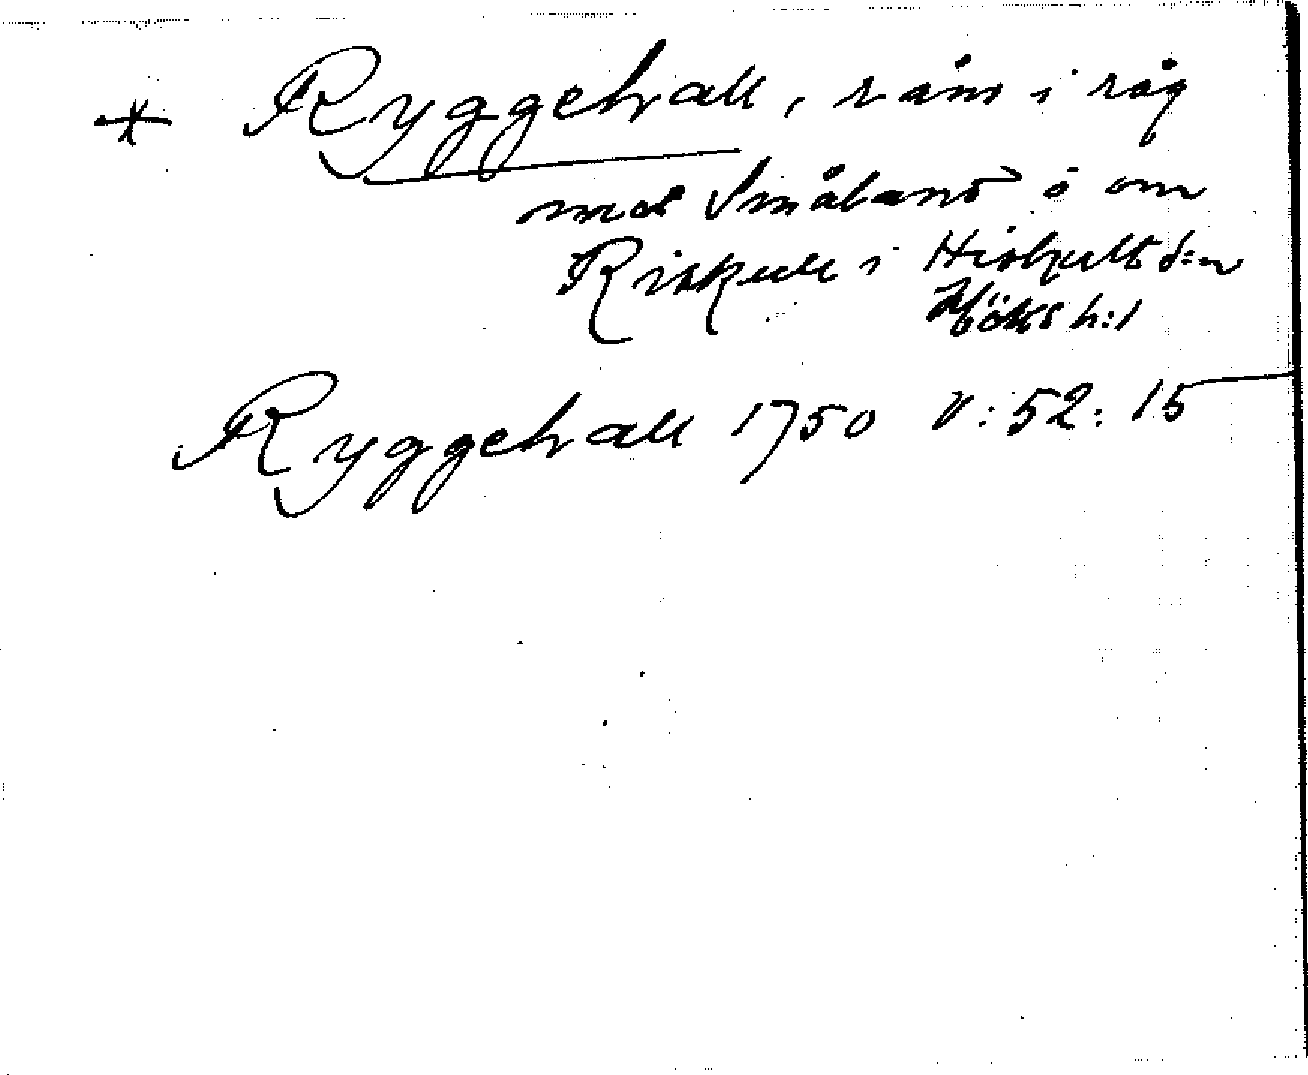 * Ryggehall, råm i råg
mot Småland ö om
Riskull i Hishults s:n
Höks h:d
Ryggehall 1750 V:52:15